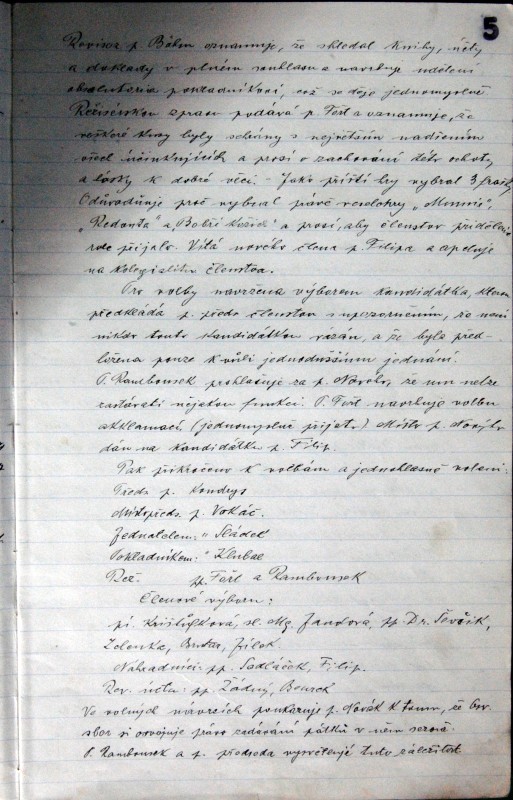 5
Revisor p. Böhm oznamuje, že shledal knihy, účty
a doklady v plném souhlasu a navrhuje udělení
absolutoria pokladníkovi, což se děje jednomyslně
Režisérskou zprávu podává p. Feřt a oznamuje, že
veškeré hry byly sehrány s největším nadšením
všech účinkujících a prosí o zachování této ochoty
a lásky k dobré věci. - Jako příští hry vybral 3 frašky
Odůvodňuje proč vybral právě veselohry „
„Redanta" a Bobří kožich" a prosí, aby členstvo přidělené
role přijalo. Vítá nového člena p. Filipa a apeluje
na kolegialitu členstva.
Pro volby navržena výborem kandidátka, kterou
předkládá p. předs. členstvu s upozorněním, že není
nikdo touto kandidátkou vázán, a že byla před-
ložena pouze k vůli jednoduššímu jednání.
P. Rambousek prohlašuje za p. Nováka, že mu nelze
zastávati nějakou funkci. P. Feřt navrhuje volbu
aklamací, (jednomyslně přijato) Místo p. Nováka
dán na kandidátku p. Filip.
Pak přikročeno k volbám a jednohlasně voleni:
Předs. p. Kondrys
Místopředs. p. Vokáč.
Jednatelem: " Sládek
Pokladníkem: " Klubal
Rež. pp. Feřt a Rambousek
Členové výboru:
pí. Křišťůfková, sl. Mg. Jandová, pp. Dr. Ševčík,
Zelenka, Jílek.
Náhradníci: pp. Sedláček, Filip.
Rev. účtů: pp. Žádný, Beusek
Ve volných návrzích poukazuje p. Novák k tomu, že
sbor si osvojuje právo zadávání pátků v něm
P. Rambousek a p. předseda vysvětluje tuto záležitost